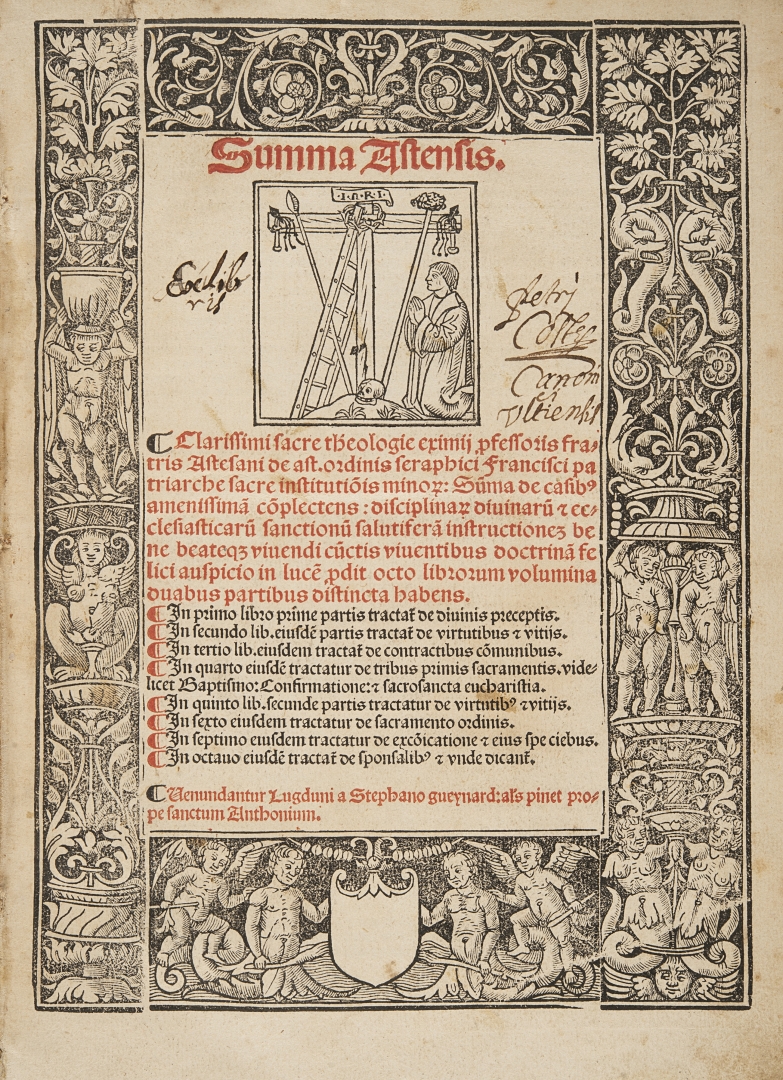 Summa Astensis.
.I.N.R.I.
Ex lib
ris
Petri
Collec
Canoni
Ultiensis
⸿ Clarissimi sacre theologie eximij ꝓfessoris fra⸗
tris Astesani de ast. ordinis seraphici Francisci pa
triarche sacre institutiõis minoꝝ: Sũma de casibꝰ
amenissimã cõplectens: disciplinaꝝ diuinarũ ⁊ ec⸗
clesiasticarũ sanctionũ salutiferã instructionez be
ne beateqꝫ viuendi cũctis viuentibus doctrinã fe
lici auspicio in lucẽ ꝓdit octo librorum volumina
duabus partibus distincta habens.
⸿ In primo libro prime partis tractat̃ de diuinis preceptis.
⸿ In secundo lib. eiusdẽ partis tractat̃ de virtutibus ⁊ vitijs.
⸿ In tertio lib. eiusdem tractat̃ de contractibus cõmunibus.
⸿ In quarto eiusdẽ tractatur de tribus primis sacramentis. vide⸗
licet Baptismo: Confirmatione: ⁊ sacrosancta eucharistia.
⸿ In quinto lib. secunde partis tractatur de virtutibꝰ ⁊ vitijs.
⸿ In sexto eiusdem tractatur de sacramento ordinis.
⸿ In septimo eiusdem tractatur de excõicatione ⁊ eius spe ciebus.
⸿ In octauo eiusdẽ tractat̃ de sponsalibꝰ ⁊ vnde dicant̃.
⸿ Uenundantur Lugduni a Stephano gueynard: al's pinet pro⸗
pe sanctum Anthonium.